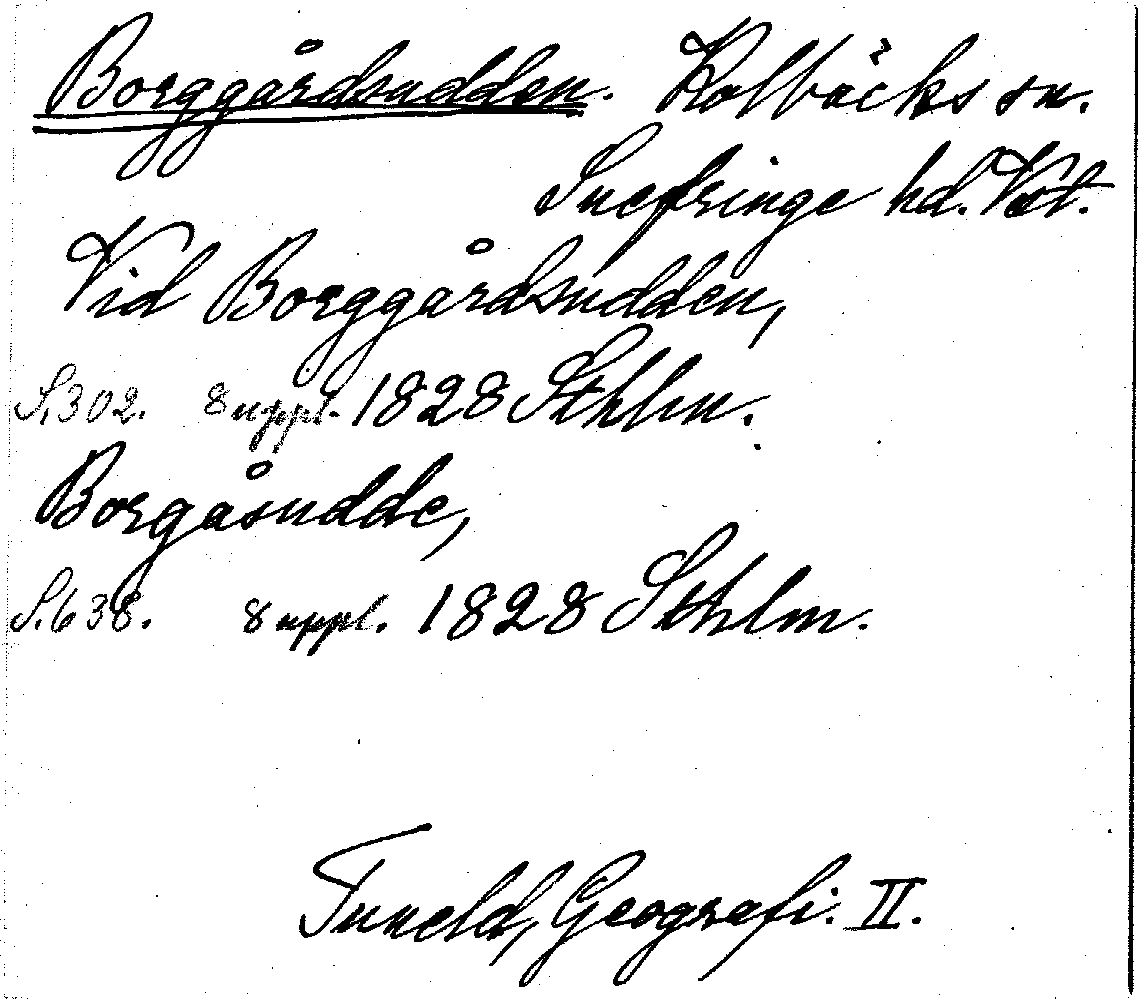 Borggårdsudden. Kolbäcks sn.
Snefringe hd. Vst.
Vid Borggårdsudden,
S.302. 8 uppl. 1828 Sthlm.
Borgåsudde,
S.638. 8 uppl. 1828 Sthlm.
Tuneld, Geografi. II.